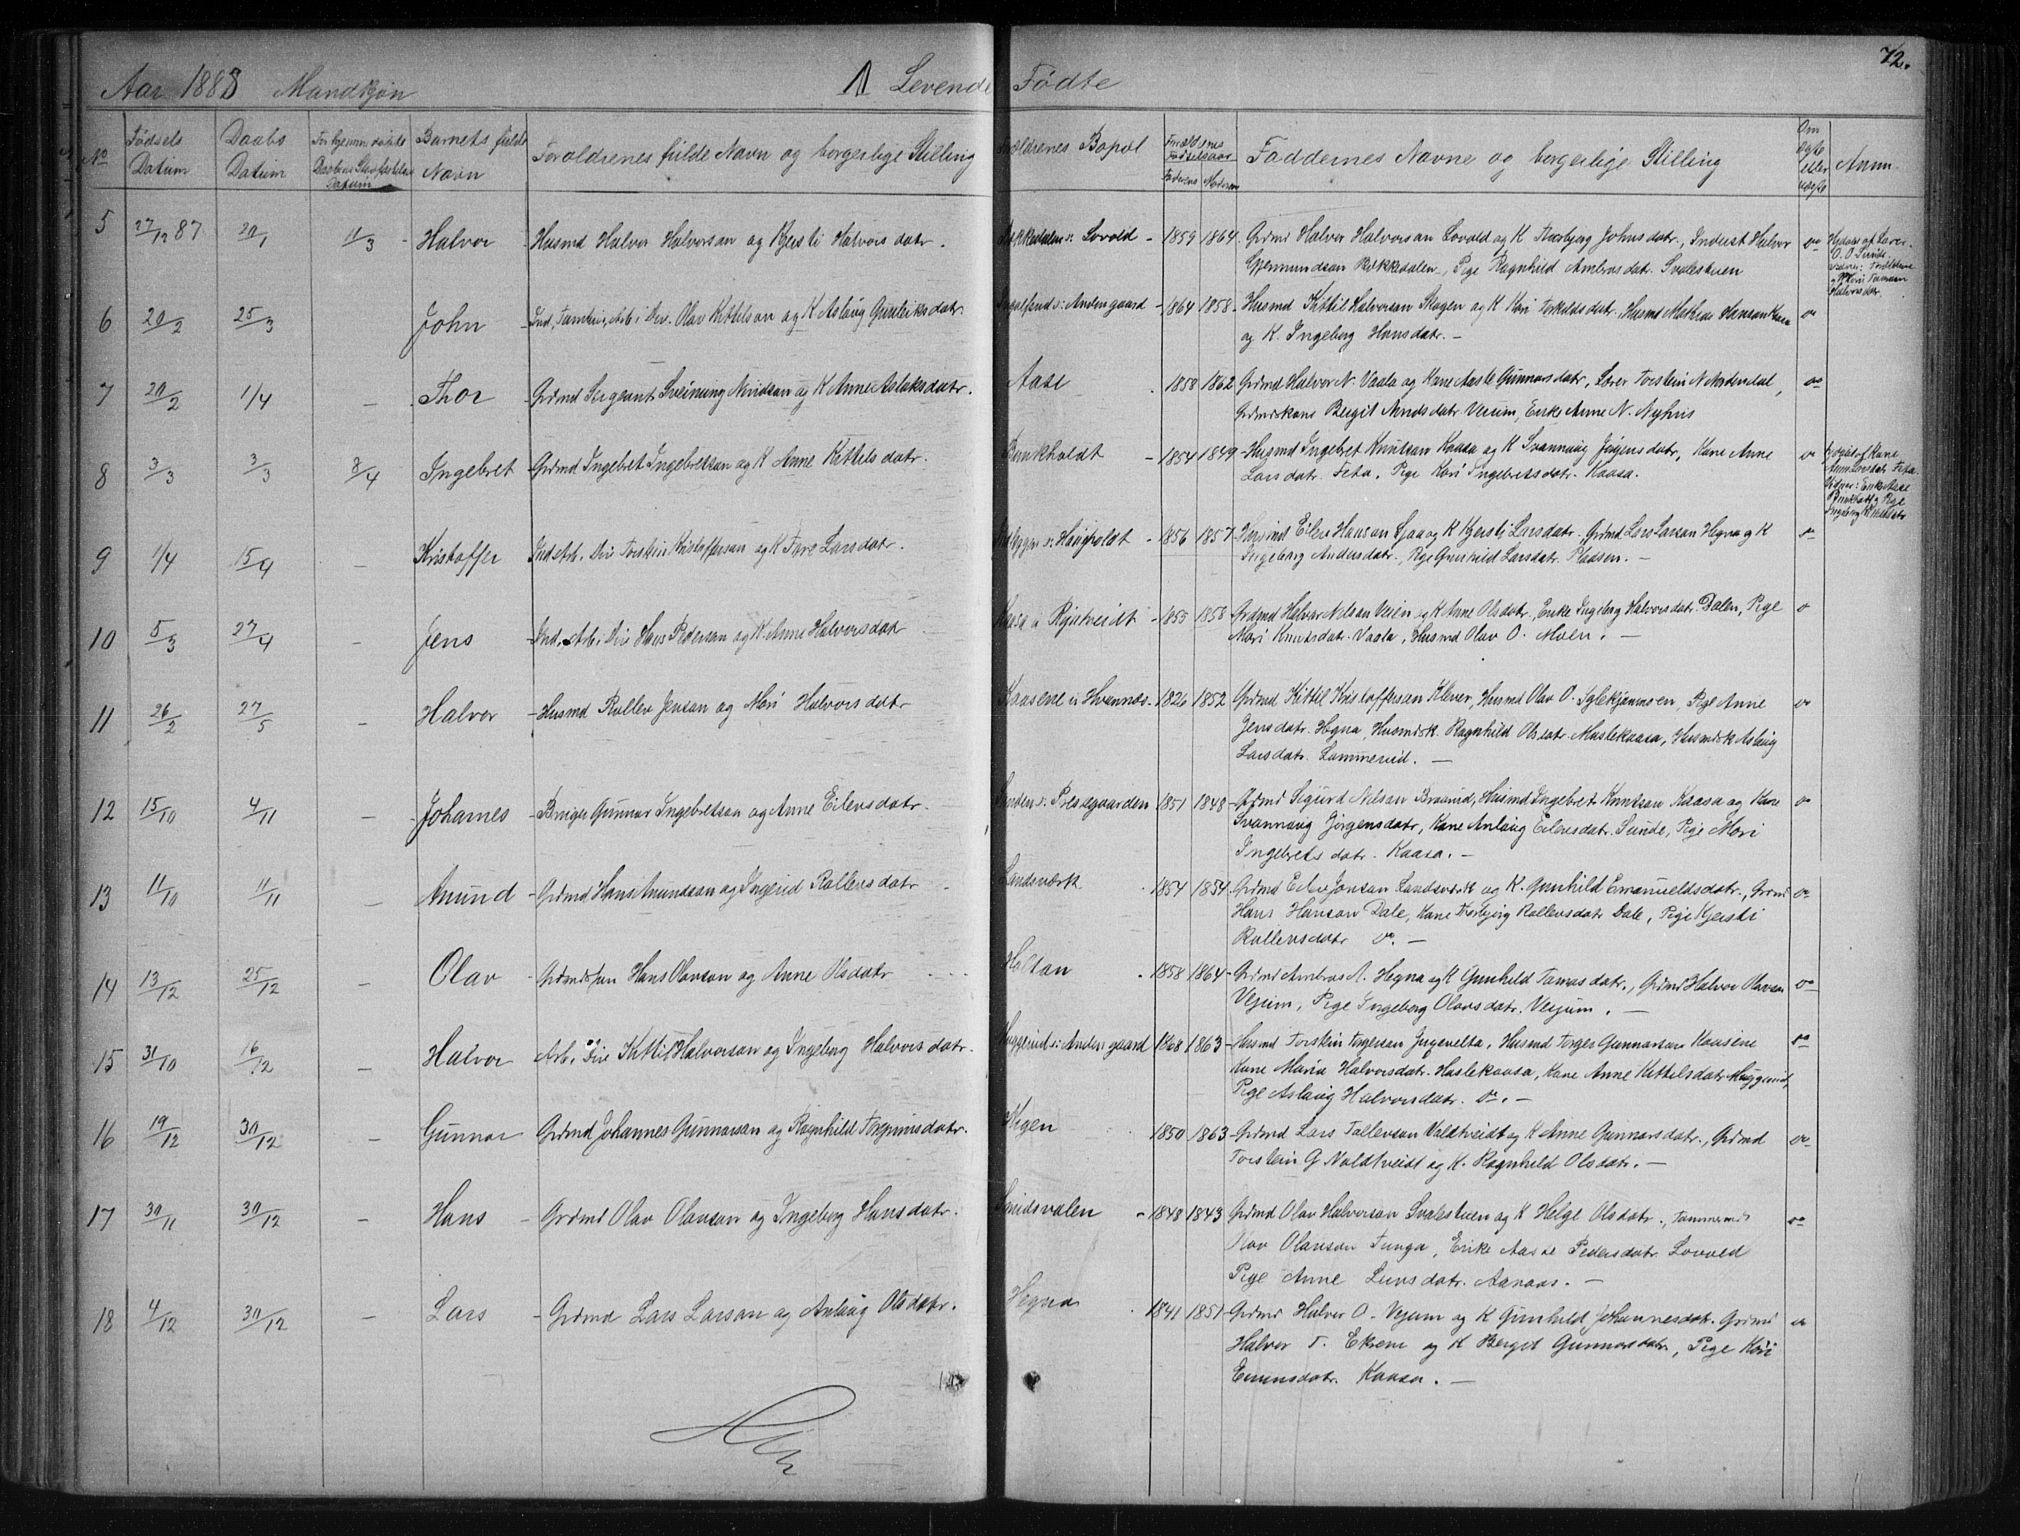 72.
Aar 1888 Mandkjøn 1 Levende Fødte
No Fødsels Datum Daabs Datum Barnets fulde Navn Forældrenes fulde Navn og borgerlige Stilling Forældrenes Bopæl Faddernes Navne og borgerlige Stilling Om ægte eller uægte Anm.
5 27/12 87 20/1 11/3 - Halvor - Husmd Halvor Halvorsan og Kjersti Halvorsdatr. Lovald - 1859 1864 Grdmd Halvor Halvorsan Lovald og K Torbjørg Johnsdatr., Inderst Halvor
Gjermundsan Rekkedalen, Pige Ragnhild Ambrosdatr. Svalestuen
Hjdøbt af Lærer O. O. Sunde.
6 20/2 25/3 John - Olav Kittilsan og K Aslaug Gunleiksdatr. Andersgaard - 1864 1858 - Husmd Kittil Halvorsan Skogen og K Kari Torkildsdatr., Husmd Mathias Hansan Kaasa
og K. Ingeborg Hansdatr. -
7 20/2 1/4 - Thor - Grdmd Sergeant Sveinung Arndsan og K Anne Aslaksdatr. Aase 1858 1862 Grdmd Halvor N. Vaala og Kone Aasle Gunnarsdatr, Lærer Torstein N. Nordendal,
Grdmdskone Bergit Arndsdatr Veium, Enke Anne N. Nyhus
8 3/3 3/3 8/4 Ingebret - Grdmd Ingebret Ingebretsan og K Anne Kittilsdatr. Bunkholdt - 1854 1849 - Husmd Ingebret Knutsan Kaasa og K Svannaug Jørgensdatr, Kone Anne
Larsdatr. Feta, Pige Kari Ingebretsdatr. Kaasa.
9 1/4 15/4 - Kristoffer Torstein Kristoffersan og K Tore Larsdatr. Haugholdt - 1856 1857 Eilev Hansan Sjaa og K Kjersti Larsdatr., Grdmd Lars Larsan Hegna og K
Ingeborg Andersdatr., Pige Gunhild Larsdatr. Pladsen. -
10 5/3 27/4 - Jens - Ind. Arb. Hans Pedersan og K. Anne Halvorsdatr Kaasa u Rjutveidt - 1855 1858 Grdmd Halvor Nilsan Veien og K Anne Olsdatr., Enke Ingeborg Halvorsdatr. Dalen, Pige
Mari Knutsdatr. Vaala, Husmd Olav O. Moen. -
11 26/2 27/5 - Halvor - Husmd Rollev Jensan og Mari Halvorsdatr Kaasene u Hvannæs - 1826 1852 Grdmd Kittil Kristoffersan Klever, Husmd Olav O. Iglekjønmoen, Pige Anne
Jensdatr. Hegna, Husmdsk. Ragnhild Olsdatr. Haslekaasa, Husmdsk Aslaug
Larsdatr. Lammerud. -
12 15/10 4/11 - Johannes - Bruger Gunnar Ingebretsan og Anne Eilevsdatr. Præstegaarden 1851 1848 - Grdmd Sigurd Nilsan Braarud, Husmd Ingebret Knutsan Kaasa og Kone
Svannaug Jørgensdatr, Kone Anlaug Eilevsdatr. Sunde, Pige Mari
Ingebretsdatr. Kaasa. -
13 11/10 11/11 - Anund - Grdmd Hans Anundsan og Ingerid Rollevsdatr Landsværk 1854 1854 - Grdmd Eilev Jonsan Landsværk og K. Gunhild Emanueldsdatr., Grdmd
Hans Hansan Dale, Kone Torbjørg Rollevsdatr Dale, Pige Kjersti
Rollevsdatr
14 13/12 25/12 - Olav - Hans Olavsan og Anne Olsdatr Holtan 1858 1864 - Grdmd Ambros A. Hegna og K Gunhild Tamasdatr., Grdmd Halvor Olavsan
Vejum, Pige Ingeborg Olavsdatr. Vejum. -
15 31/10 16/12 - Halvor Kittil Halvorsan og Ingeborg Halvorsdatr. Haggerud u Andersgaard 1868 1863 - Husmd Torstein Torgersan Jngevelta, Husmd Torger Gunnarsan Kaasene
Kone Maria Halvorsdatr. Haslekaasa, Kone Anne Kittilsdatr Haggerud,
Pige Aslaug Halvorsdatr. -
16 19/12 30/12 - Gunnar - Grdmd Johannes Gunnarsan og Ragnhild Torgrimsdatr. 1850 1863 - Grdmd Lars Tallevsan Valdtveidt og K Anne Gunnarsdatr., Grdmd
Torstein G Valdtveidt og K. Ragnhild Olsdatr. -
17 30/11 30/12 - Hans - Grdmd Olav Olavsan og Ingeborg Hansdatr. Smidsvalen - 1848 1843 Grdmd Olav Halvorsan Svalestuen og K Helge Olsdatr., Tømmermd
Olav Olavsan Tunga, Enke Aasle Pedersdatr. Lovald
Pige Anne Larsdatr. Aanaas. -
18 4/12 30/12 - Lars - Grdmd Lars Larsan og Anlaug Olsdatr. Hegna 1841 1851 - Grdmd Halvor O. Vejum og K Gunhild Johannesdatr. Grdmd
Halvor T. Ekren og K Berget Gunnarsdatr, Pige Kari
Evensdatr. Kaasa. -